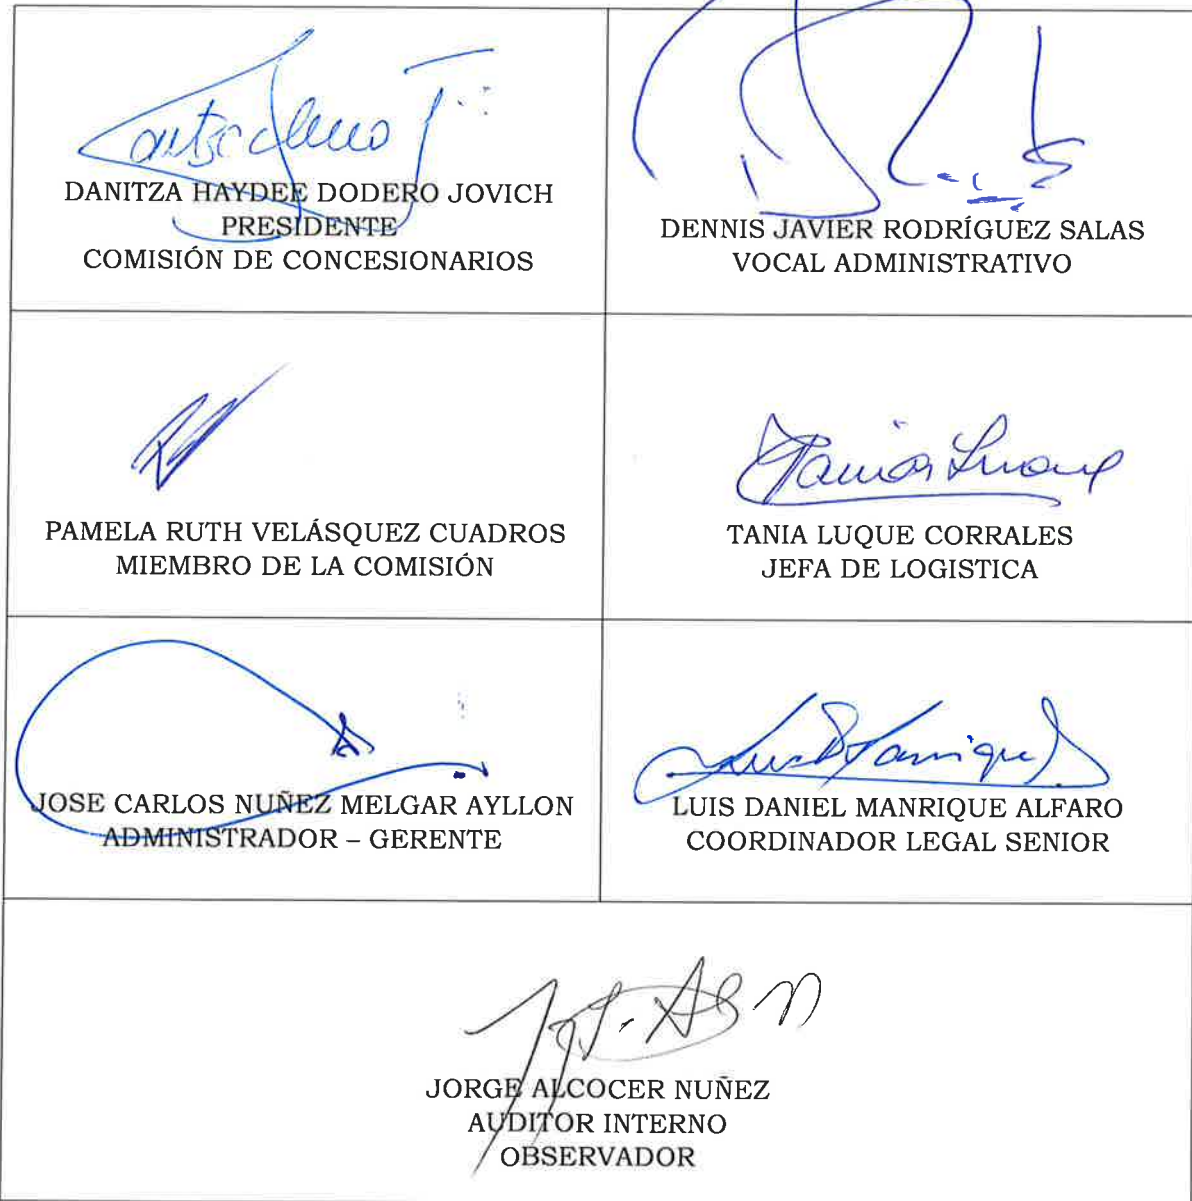 DANITZA HAYDEE DODERO JOVICH
PRESIDENTE
COMISIÓN DE CONCESIONARIOS
DENNIS JAVIER RODRÍGUEZ SALAS
VOCAL ADMINISTRATIVO
PAMELA RUTH VELÁSQUEZ CUADROS
MIEMBRO DE LA COMISIÓN
TANIA LUQUE CORRALES
JEFA DE LOGISTICA
JOSE CARLOS NUÑEZ MELGAR AYLLON
ADMINISTRADOR – GERENTE
LUIS DANIEL MANRIQUE ALFARO
COORDINADOR LEGAL SENIOR
JORGE ALCOCER NUÑEZ
AUDITOR INTERNO
OBSERVADOR